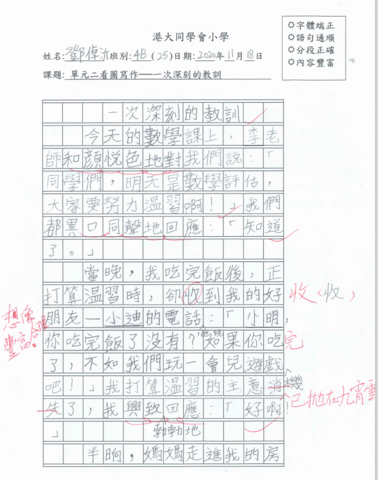 港大同學會小學
姓名: 鄧倬沂 班別: 4B (25) 日期: 2020年11月13日
課題: 單元二看圖寫作——一次深刻的教訓
○字體端正
○語句通順
○分段正確
○內容豐富
一次深刻的教訓
今天的數學課上，李老
師和顏悅色地對我們說：「
同學們，明天是數學評估，
大家要努力溫習啊！」我們
都異口同聲地回應：「知道
了。」
當晚，我吃完飯後，正
打算溫習時，卻收到我的好
收（收）
朋友—小迪的電話：「小明，
想像豐富
你吃完飯了沒有？如果你吃完
了，不如我們玩一會兒遊戲
吧！」我打算溫習的主意消
已拋在九霄雲
失了，我興致回應：「好啊!
勃勃地
」
半晌，媽媽走進我的房